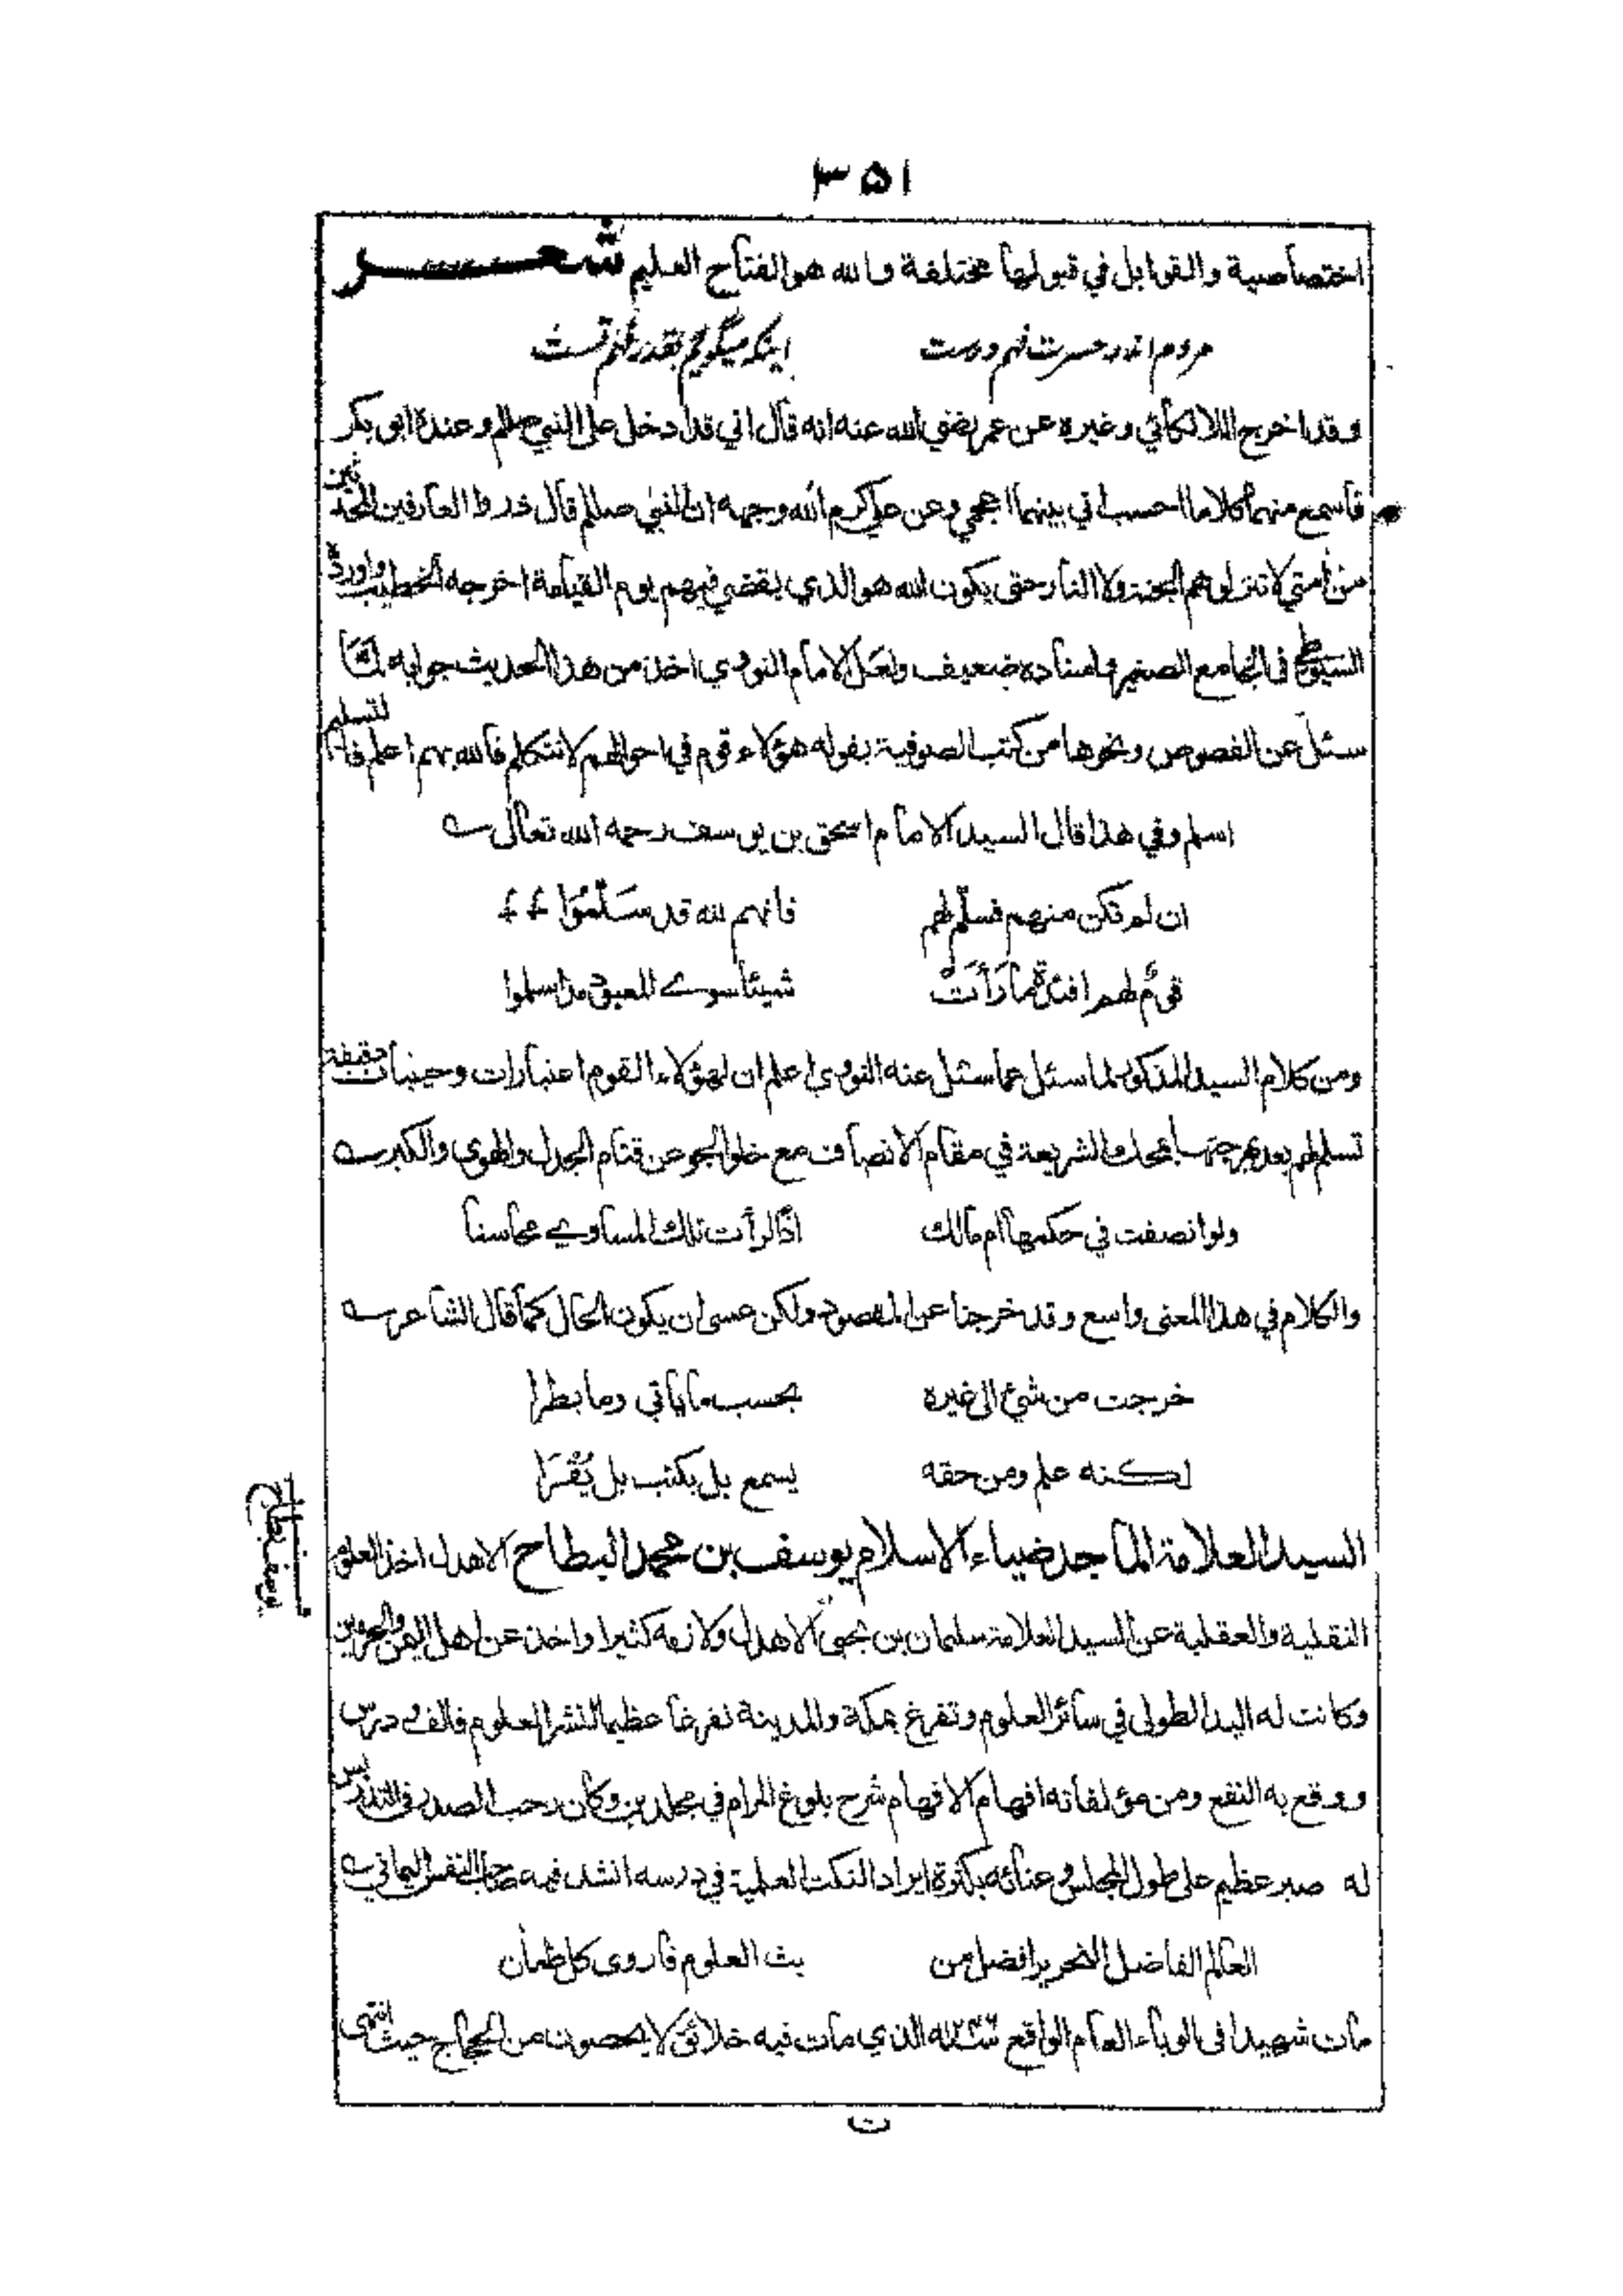 ٣٥١
اختصاصية والقوابل في قبولها مختلفة والله هو الفتاح العليم شعر
مردم اندر حسرت فهم درست اینکه میگویم بقدر فهم تست
وقد اخرج اللالكائي وغيره عن عمر رضي الله عنه انه قال اني قد ادخل على النبي صللم وعنده ابو بكر
فاسمع منهما كلاما احسب اني بينهما اعجمي وعن علي كرم الله وجهه ان النبي صللم قال ذروا العارفين المحدثين
من أمتي لا تنزلوهم الجنة ولا النار حتى يكون الله هو الذي يقضي فيهم يوم القيامة اخرجه الخطيب واورده
السيوطي في الجامع الصغير واسناده ضعيف ولعل الامام النووي اخذ من هذا الحديث جوابه لما
سئل عن الفصوص ونحوها من كتب الصوفية بقوله هؤلاء قوم في احوالهم لا نتكلم فالله بهم اعلم فالتسليم
اسلم وفي هذا قال السيد الامام اسحق بن يوسف رحمه الله تعالى
ان لم تكن منهم فسلّم لهم فانهم لله قد سَلَّمُوا
قومٌ لهم افئدة ما رَأَتْ شيئا سوى المعبود مذ اسلموا
ومن كلام السيد المذكور لما سئل عما سئل عنه النووي اعلم ان لهؤلاء القوم اعتبارات وحيثيات دقيقة
تسلم لهم بعد عرضها بمحك الشريعة في مقام الانصاف مع خلو الجو عن قتام الجدل والهوى والكبر
ولو انصفت في حكمها أم مالك اذًا لرأت تلك المساوي محاسنا
والكلام في هذا المعنى واسع وقد خرجنا عن المقصود ولكن عسى ان يكون الحال كما قال الشاعر
خرجت من شئ الى غيره بحسب ما يأتي وما يطرا
لكنه علم ومن حقه يسمع بل يكتب بل يُقْرَا
السيد العلامة الماجد ضياء الاسلام يوسف بن محمد البطاح الاهدل اخذ العلوم
يوسف بطاح
النقلية والعقلية عن السيد العلامة سليمان بن يحيى الاهدل ولازمه كثيرا واخذ عن اهل اليمن والحرمين
وكانت له اليد الطولى في سائر العلوم وتفرغ بمكة والمدينة تفرغا عظيما لنشر العلوم فالف ودرس
ووقع به النفع ومن مؤلفاته افهام الافهام شرح بلوغ المرام في مجلدين وكان رحب الصدر في التدريس
له صبر عظيم على طول المجلس وعنائه بكثرة ايراد النكت العلمية في درسه انشد فيه صاحب النفس اليماني
العالم الفاضل النحرير افضل من بث العلوم فأروى كل ظمأن
مات شهيدا في الوباء العام الواقع الذي مات فيه خلائق لا يحصون من الحجاج حيث انتهى
ت